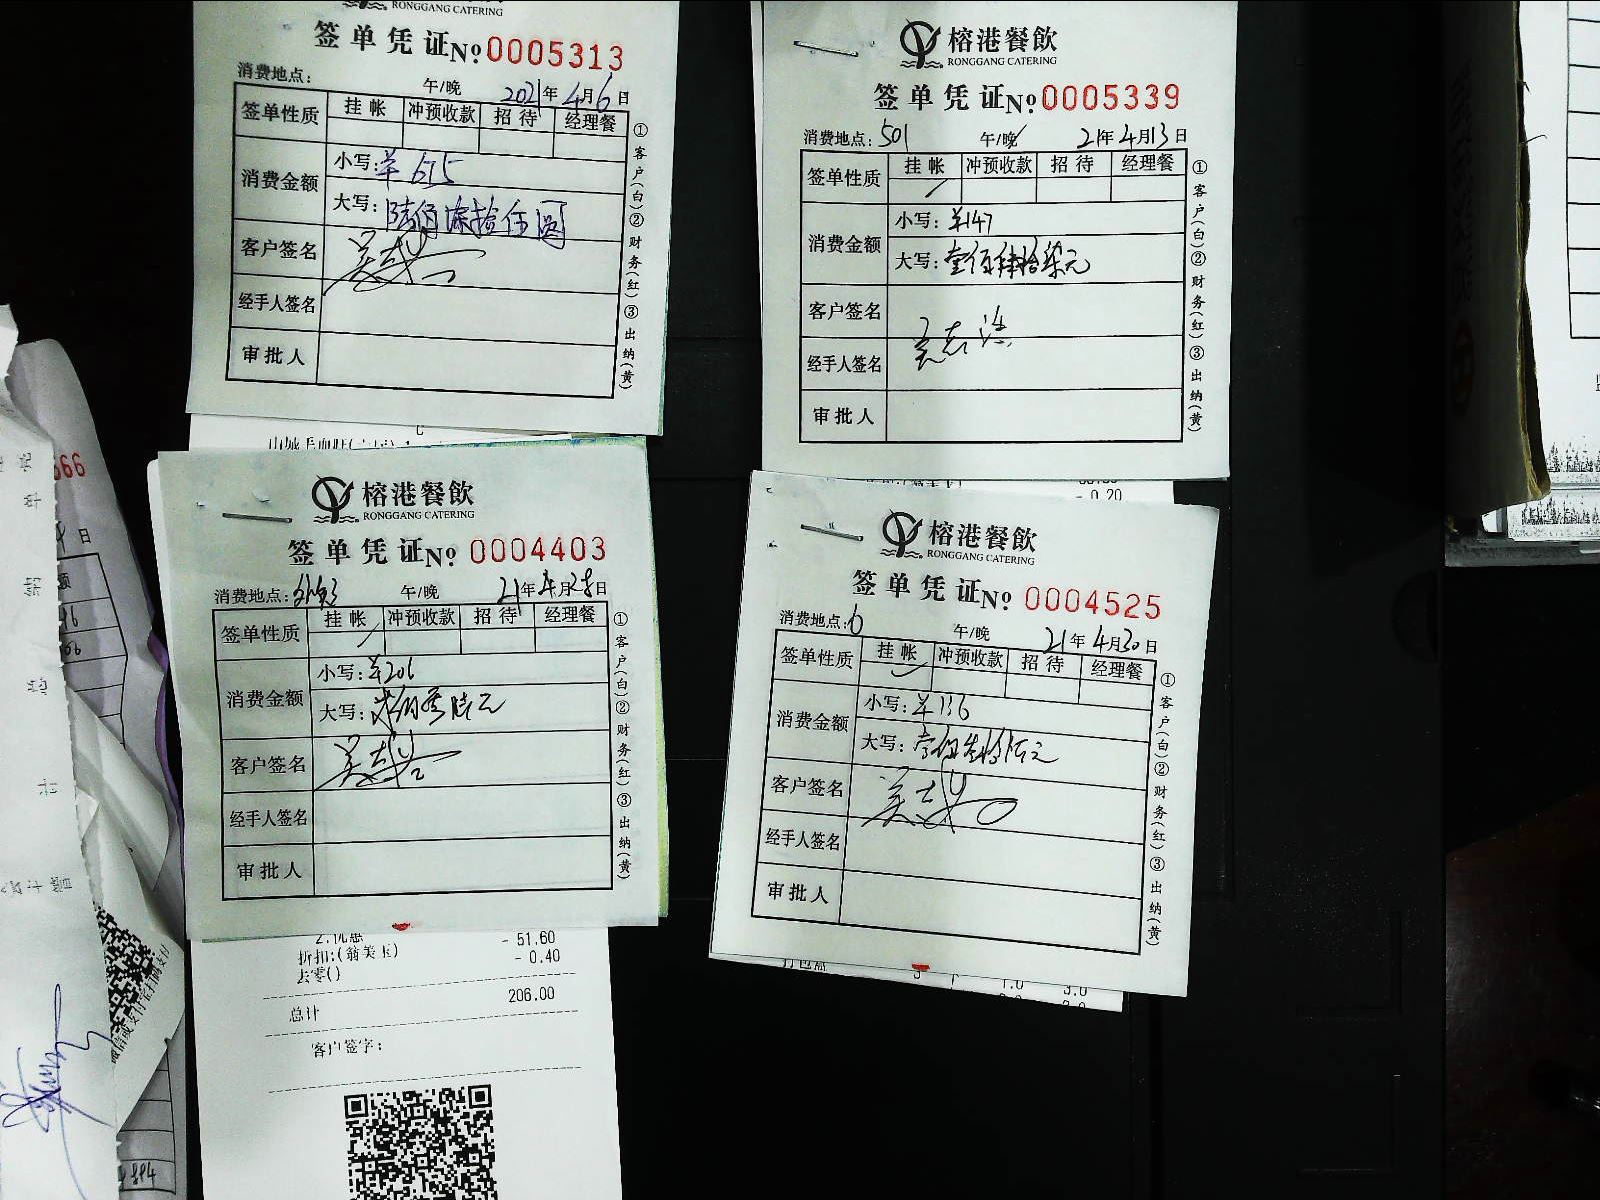 RONGGANG CATERING
签单凭证№ 0005313
消费地点: 午/晚 2021年4月6日
签单性质 挂帐 冲预收款 招待 经理餐
消费金额 小写:羊675
大写:陆佰柒拾伍圆
客户签名
经手人签名
审批人
①客户(白)②财务(红)③出纳(黄)
榕港餐飲
RONGGANG CATERING
签单凭证№ 0005339
消费地点:501 午/晚 21年4月13日
签单性质 挂帐 冲预收款 招待 经理餐
消费金额 小写:羊147
大写:壹佰肆拾柒元
客户签名
经手人签名
审批人
①客户(白)②财务(红)③出纳(黄)
- 0.20
榕港餐飲
RONGGANG CATERING
签单凭证№ 0004403
消费地点: 午/晚 21年4月28日
签单性质 挂帐 冲预收款 招待 经理餐
消费金额 小写:羊206
大写:贰佰零陆元
客户签名
经手人签名
审批人
①客户(白)②财务(红)③出纳(黄)
- 51.60
折扣:(翁美玉) - 0.40
去零()
206.00
总计
客户签字:
榕港餐飲
RONGGANG CATERING
签单凭证№ 0004525
消费地点:6 午/晚 21年4月30日
签单性质 挂帐 冲预收款 招待 经理餐
消费金额 小写:羊136
大写:
客户签名
经手人签名
审批人
①客户(白)②财务(红)③出纳(黄)
1.0 3.0